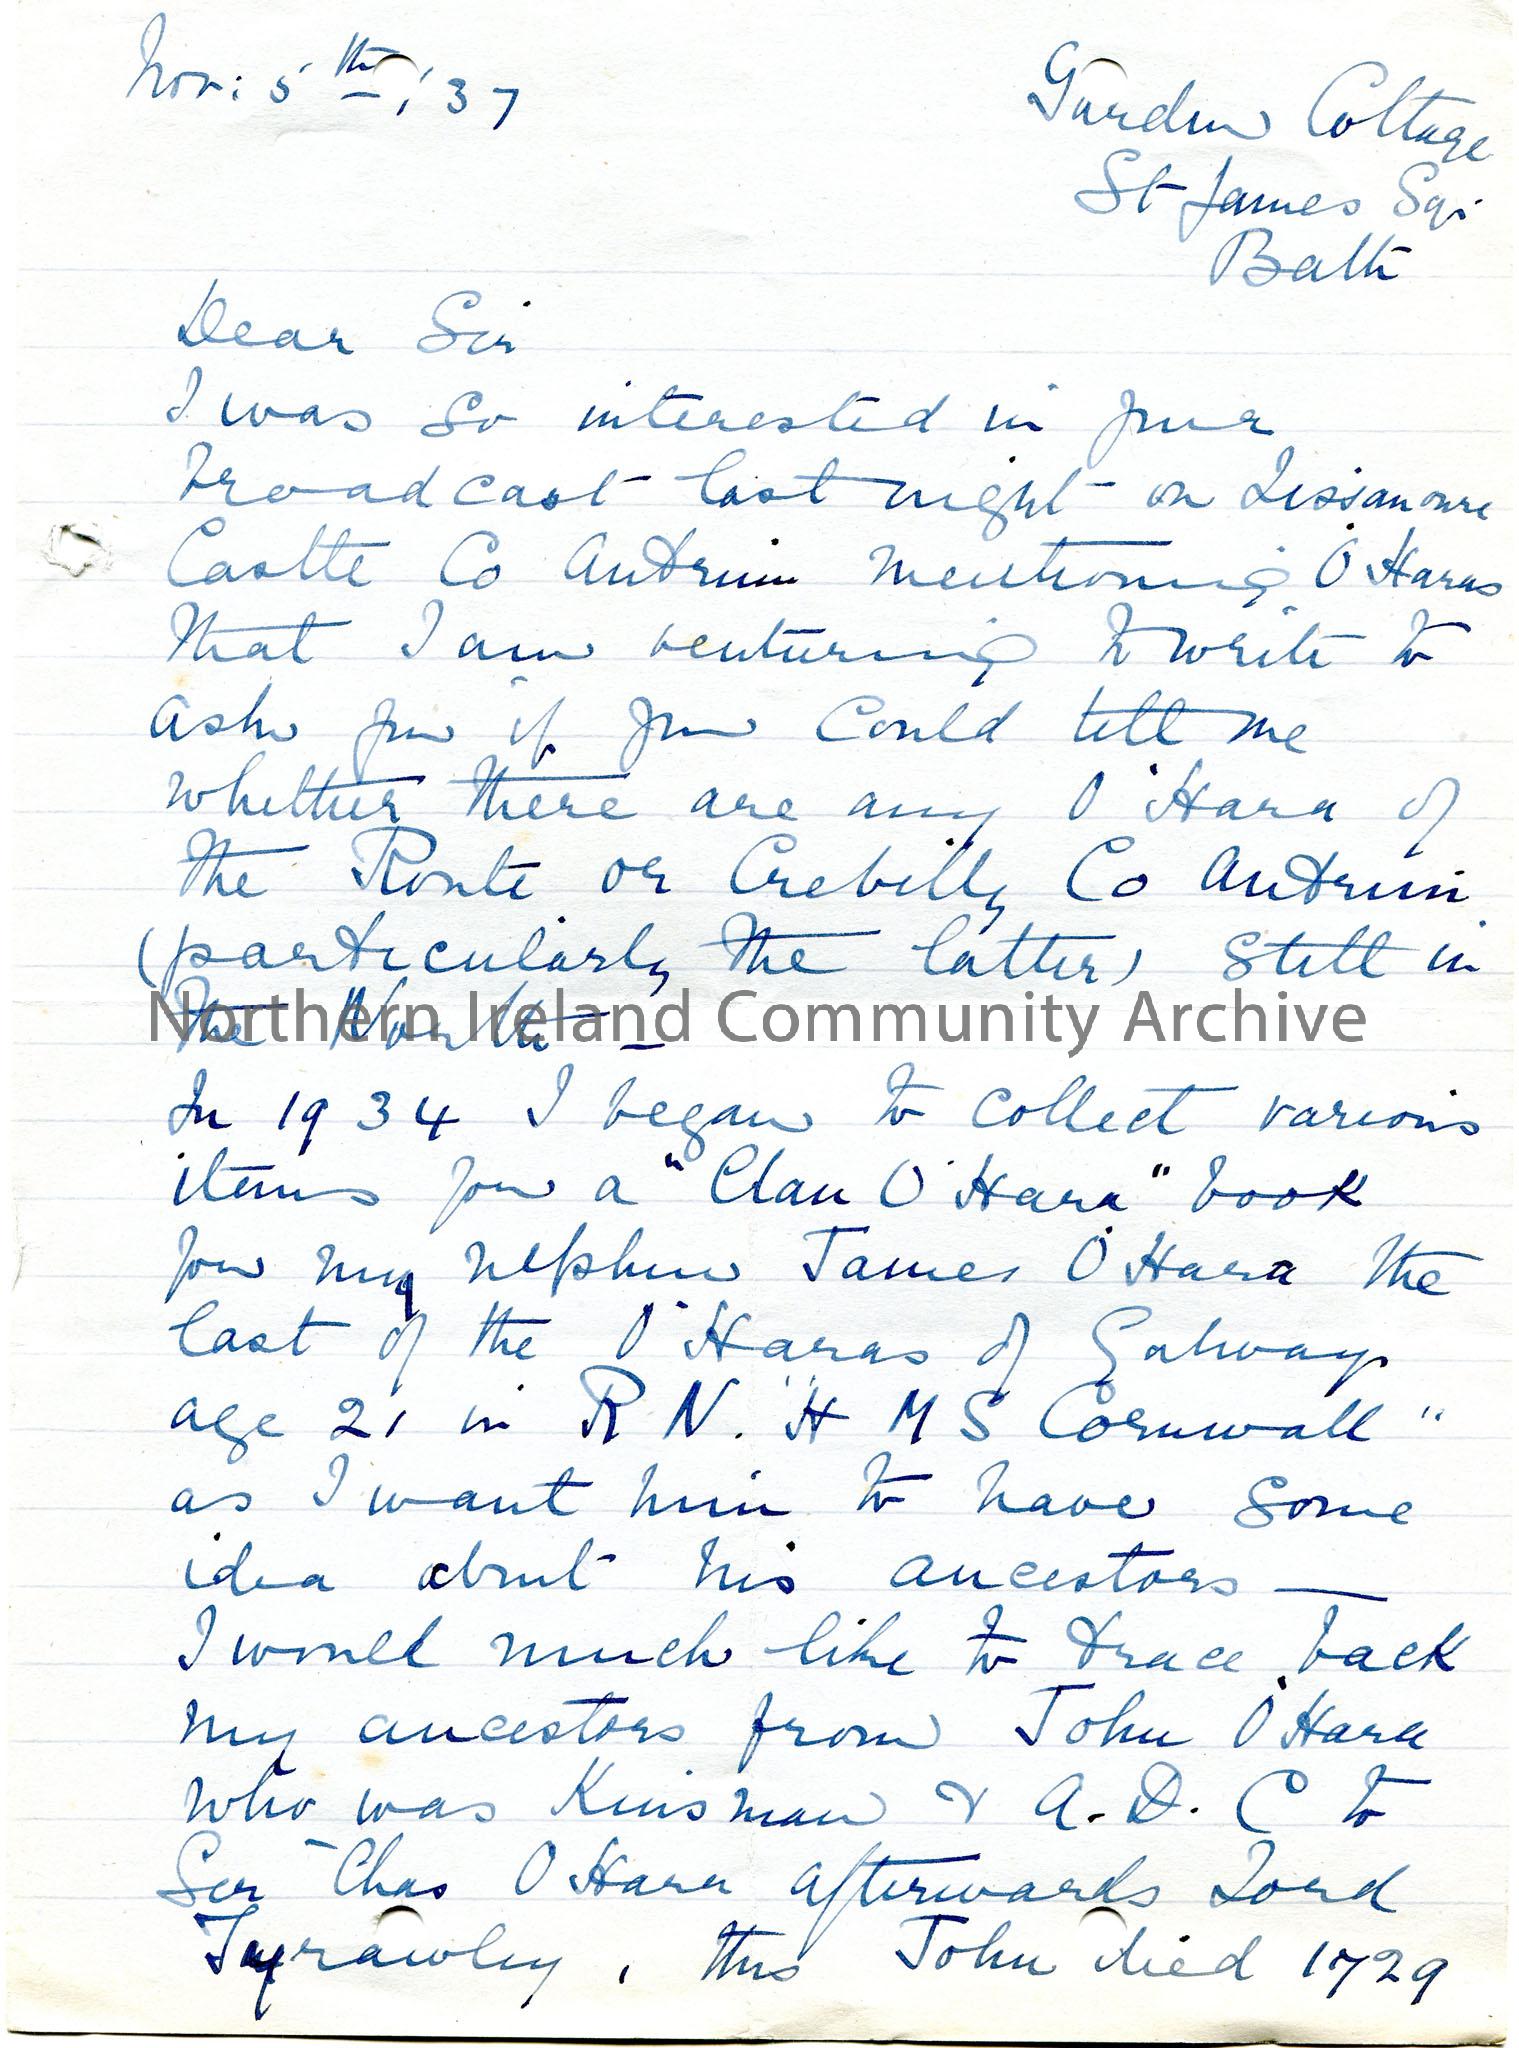 Nov: 5th, '37
Garden Cottage
St James Sq:
Bath
Dear Sir
I was so interested in your
broadcast last night on Lissanoure
Castle Co Antrim mentioning O'Haras
that I am venturing to write to
ask you if you could tell me
whether there are any O'Hara of
the Route or Crebilly Co Antrim
(particularly the latter) still in
the North –
Northern Ireland Community Archive
In 1934 I began to collect various
items for a "Clan O'Hara" book
for my nephew James O'Hara the
last of the O'Haras of Galway
age 21 in R N. "H M S Cornwall"
as I want him to have some
idea about his ancestors —
I would much like to trace back
my ancestors from John O'Hara
who was Kinsman & A.D.C to
Sir Chas O'Hara afterwards Lord
Tyrawley, this John died 1729